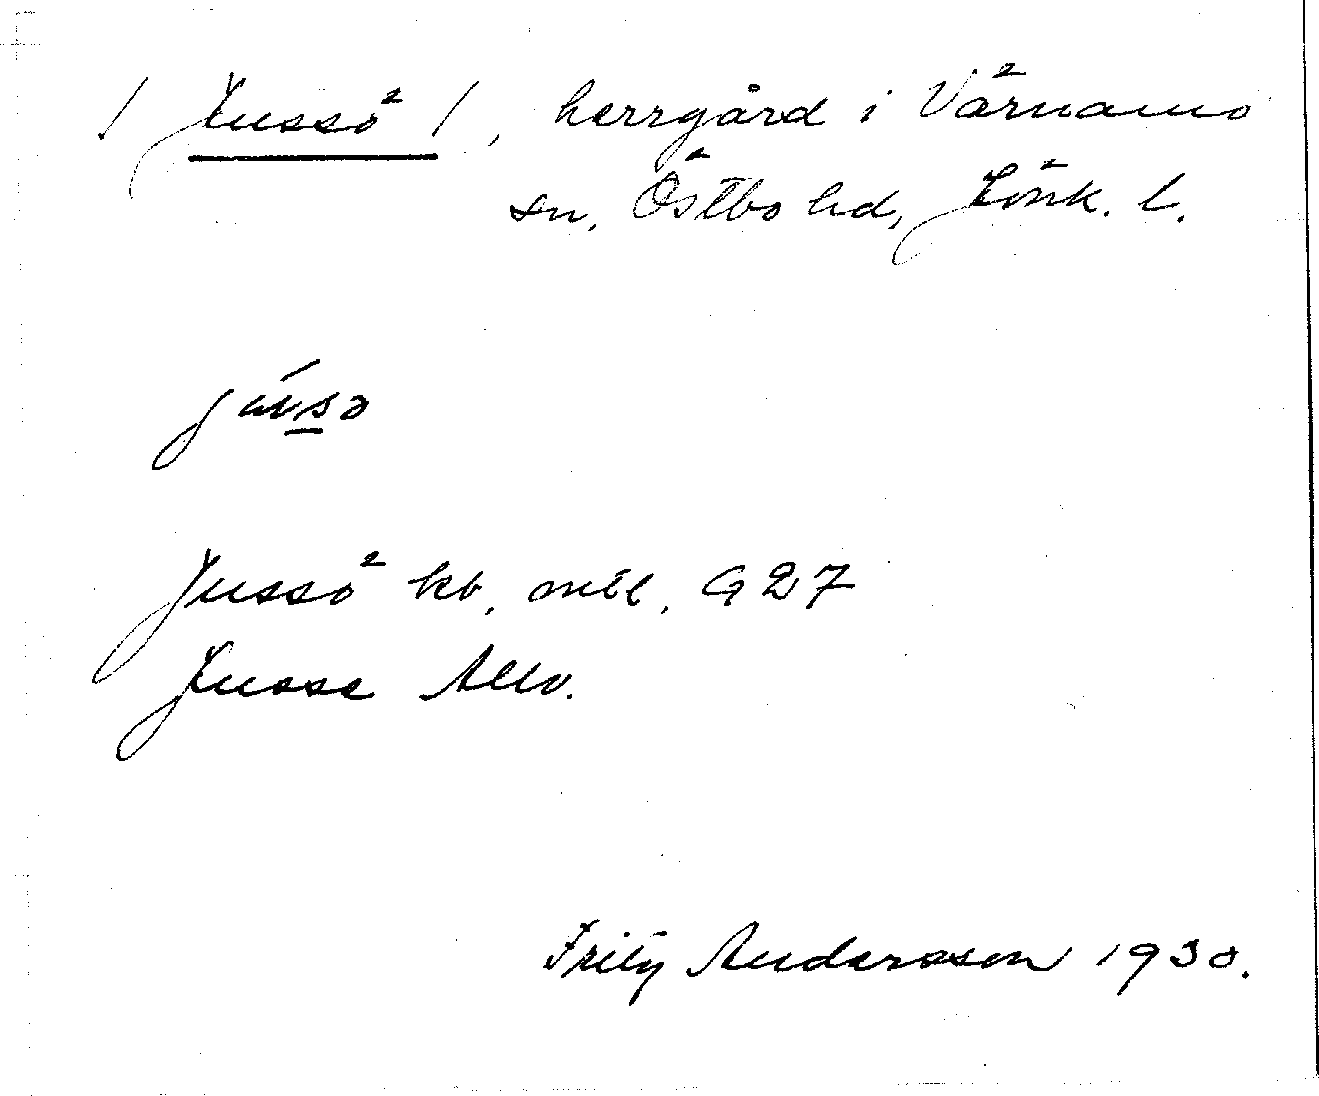 / Jussö /, herrgård i Värnamo
sn, Östbo hd, Jönk. l.
Jussö kb, mtl, G 27
Jusse Allv.
Fritz Andersson 1930.